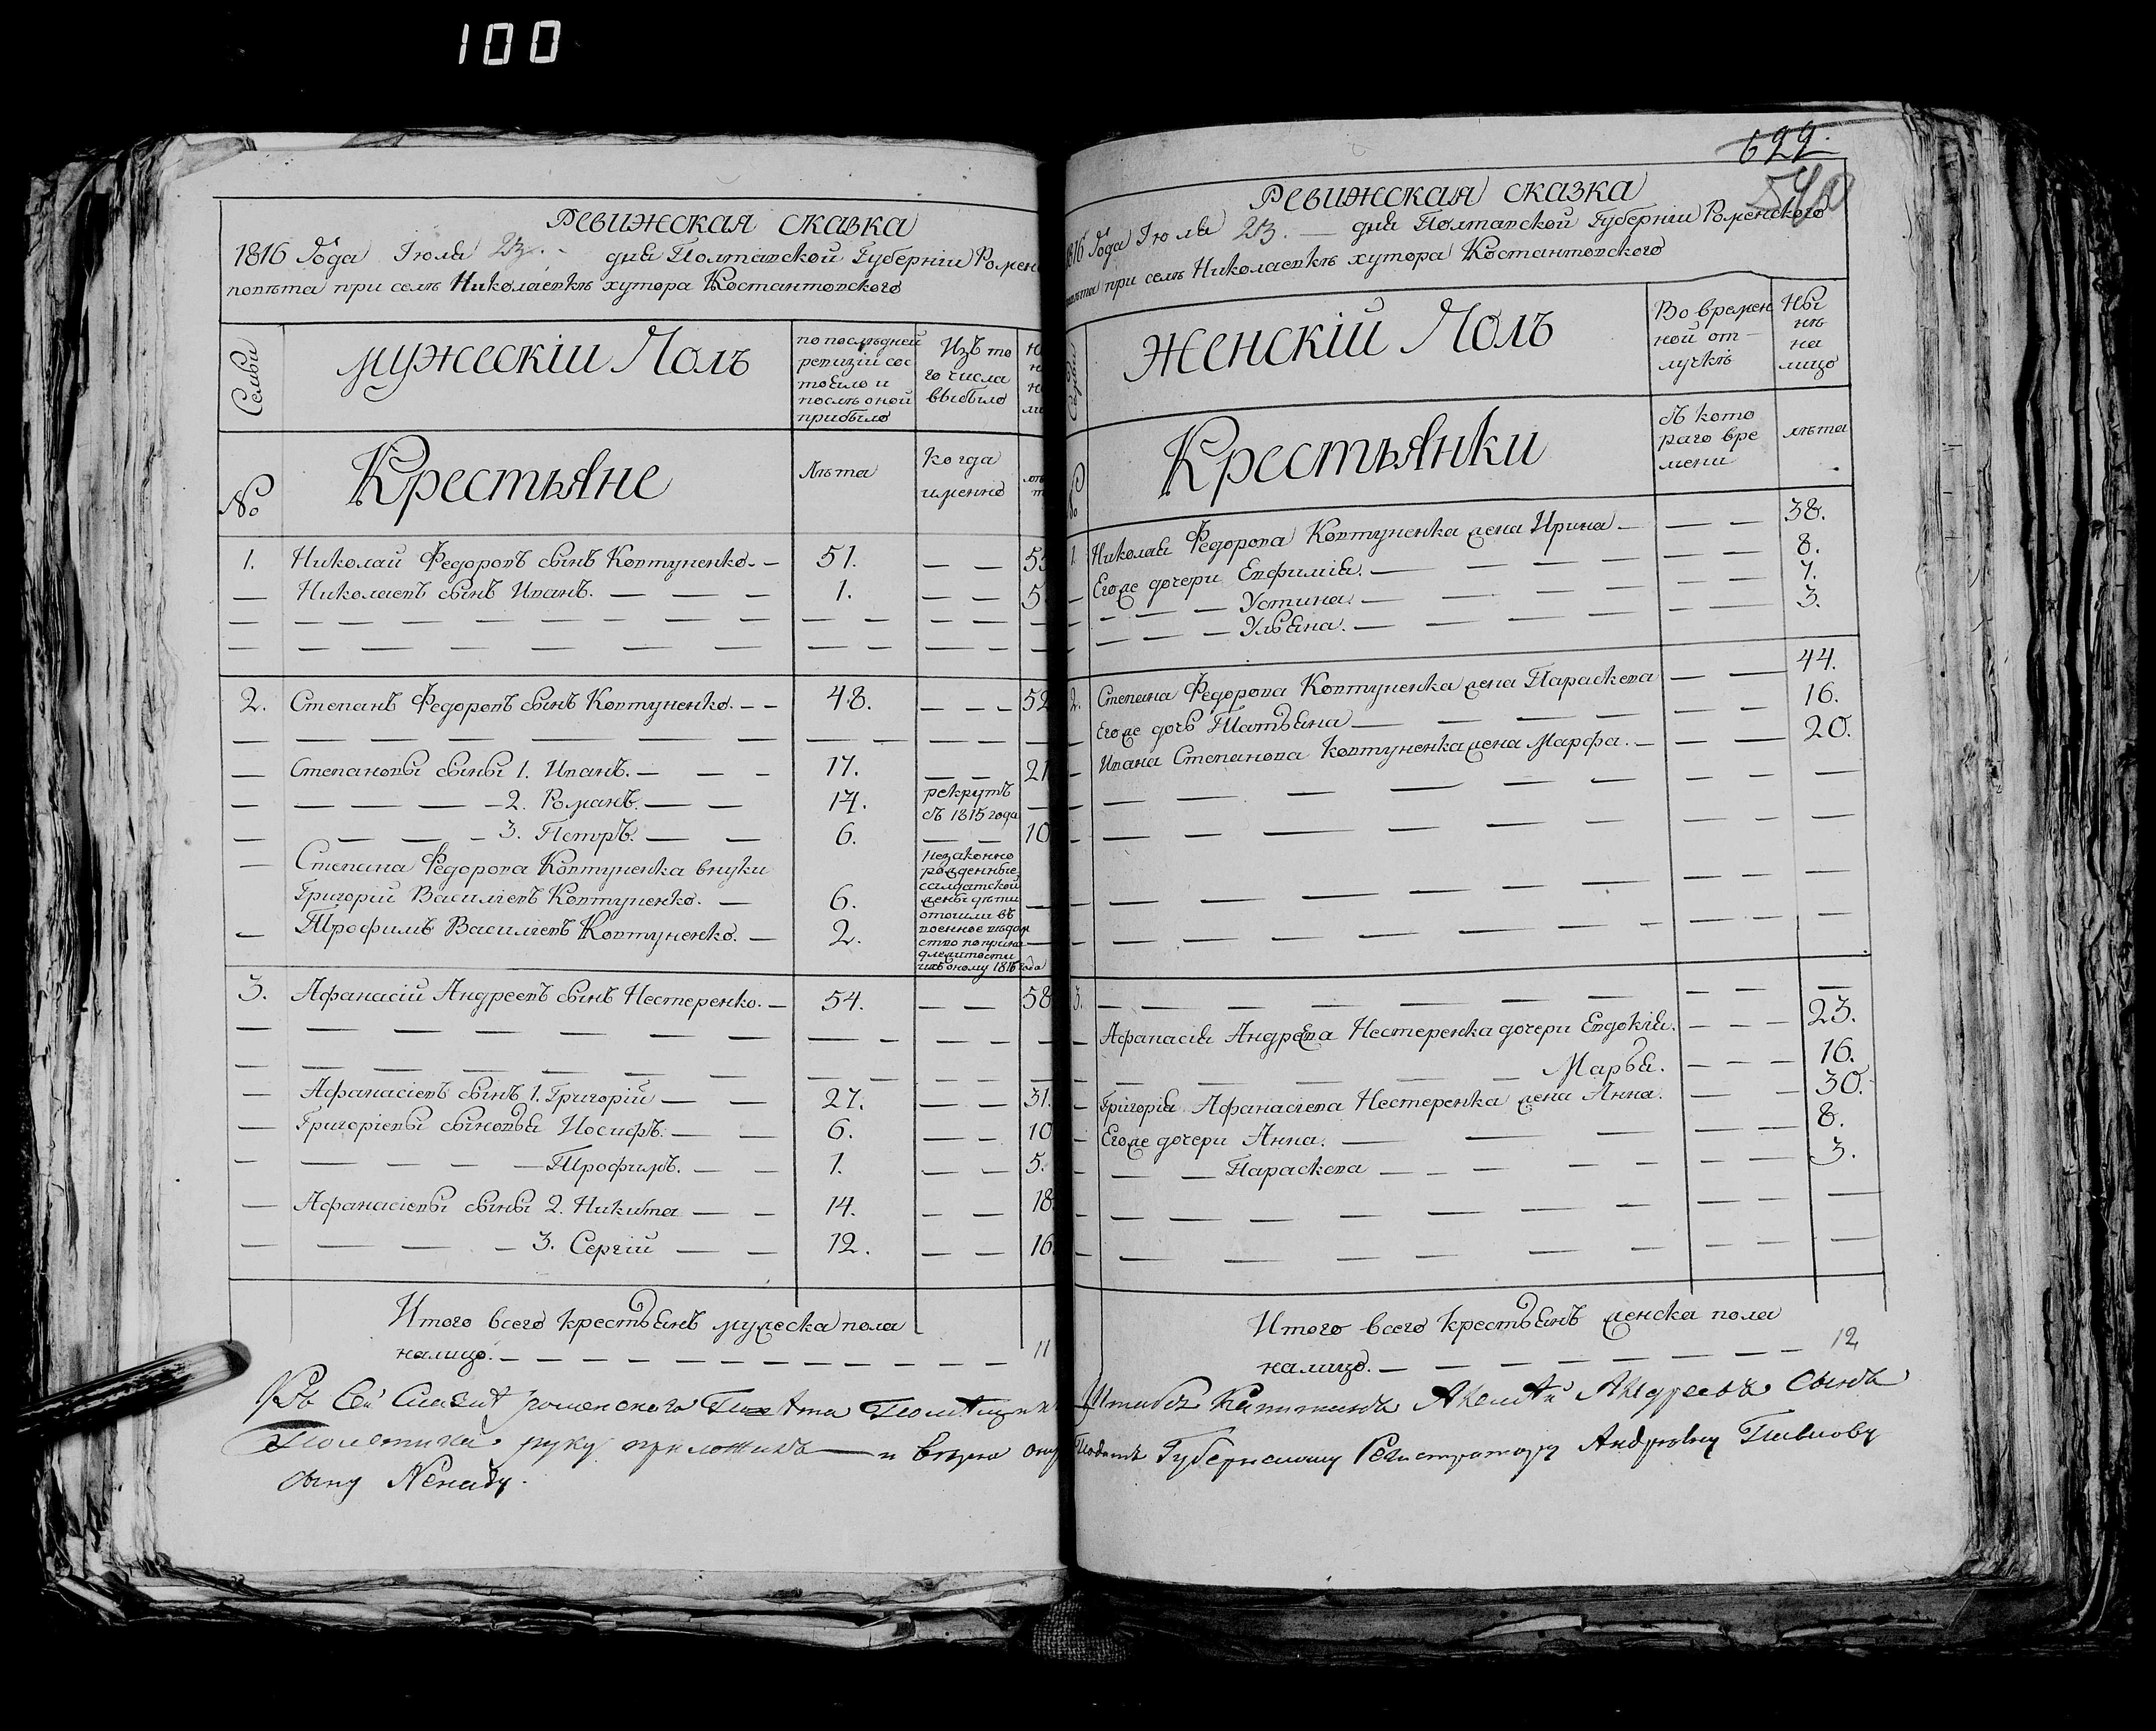 100
Ревижская сказка
1816 Года Іюля 23. дня Полтавской Губерніи Ромен
повѣта при селѣ Николаевкѣ хутора Костантовского
Семьи
мужескій Полъ
по послѣдней
ревизіи сос
тояло и
послѣ оной
прибыло
Изъ то
го числа
выбыло
№
Крестьяне
Лѣта
когда
именно
1. Николай Федоровъ сынъ Ковтуненко. 51. 5
Николаевъ сынъ Иванъ. 1. 5
2. Степанъ Федоровъ сынъ Ковтуненко. 48. 52
Степановы сыны 1. Иванъ. 17. 21
2. Романъ. 17. рекрутъ
съ 1815 года
3. Петръ. 6. 10
Степана Федорова Ковтуненка внуки
Григорій Василіевъ Ковтуненко. 6.
Трофимъ Василіевъ Ковтуненко. 2.
незаконно
рожденные
салдатской
жены дѣти
отошли въ
военное вѣдом
ство по прина
длежности
ихъ оному 1816 года
3. Афанасій Андреевъ сынъ Нестеренко. 54. 58
Афанасіевъ сынъ 1. Григорій 27. 31.
Григоріевы сыновья Иосифъ. 6. 10
Трофимъ. 1. 5.
Афанасіевы сыны 2. Никита 14. 18
3. Сергій 12. 16
Итого всего крестьянъ мужеска пола
налицо. 11
622.
540
Ревижская сказка
1816 Года Іюля 23. дня Полтавской Губерніи Роменского
повѣта при селѣ Николаевкѣ хутора Костантовского
Семьи
Женскій Полъ
Во времен
ной от
лучкѣ
Ны
нѣ
на
лицо
№
Крестьянки
съ кото
раго вре
мени
лѣта
1. Николая Федорова Ковтуненка жена Ирина 38.
Егоже дочери Евфимія. 8.
Устина. 7.
Ульяна. 3.
2. Степана Федорова Ковтуненка жена Параскева 44.
Егоже дочь Татьяна 16.
Ивана Степанова Ковтуненка жена Марфа. 20.
3.
Афанасія Андреева Нестеренка дочери Евдокія. 23.
Марья. 16.
Григорія Афанасіева Нестеренка жена Анна. 30.
Егоже дочери Анна. 8.
Параскева 3.
Итого всего крестьянъ женска пола
налицо. 12
Къ Сей Сказкѣ роменского Повѣта Помѣщикъ Штабсъ Капитанъ Алексѣй Андреевъ Сынъ
Полетика руку приложилъ и вѣрю оную Подать Губернскому Регистратору Андрею Павлову
сыну Ненаду.